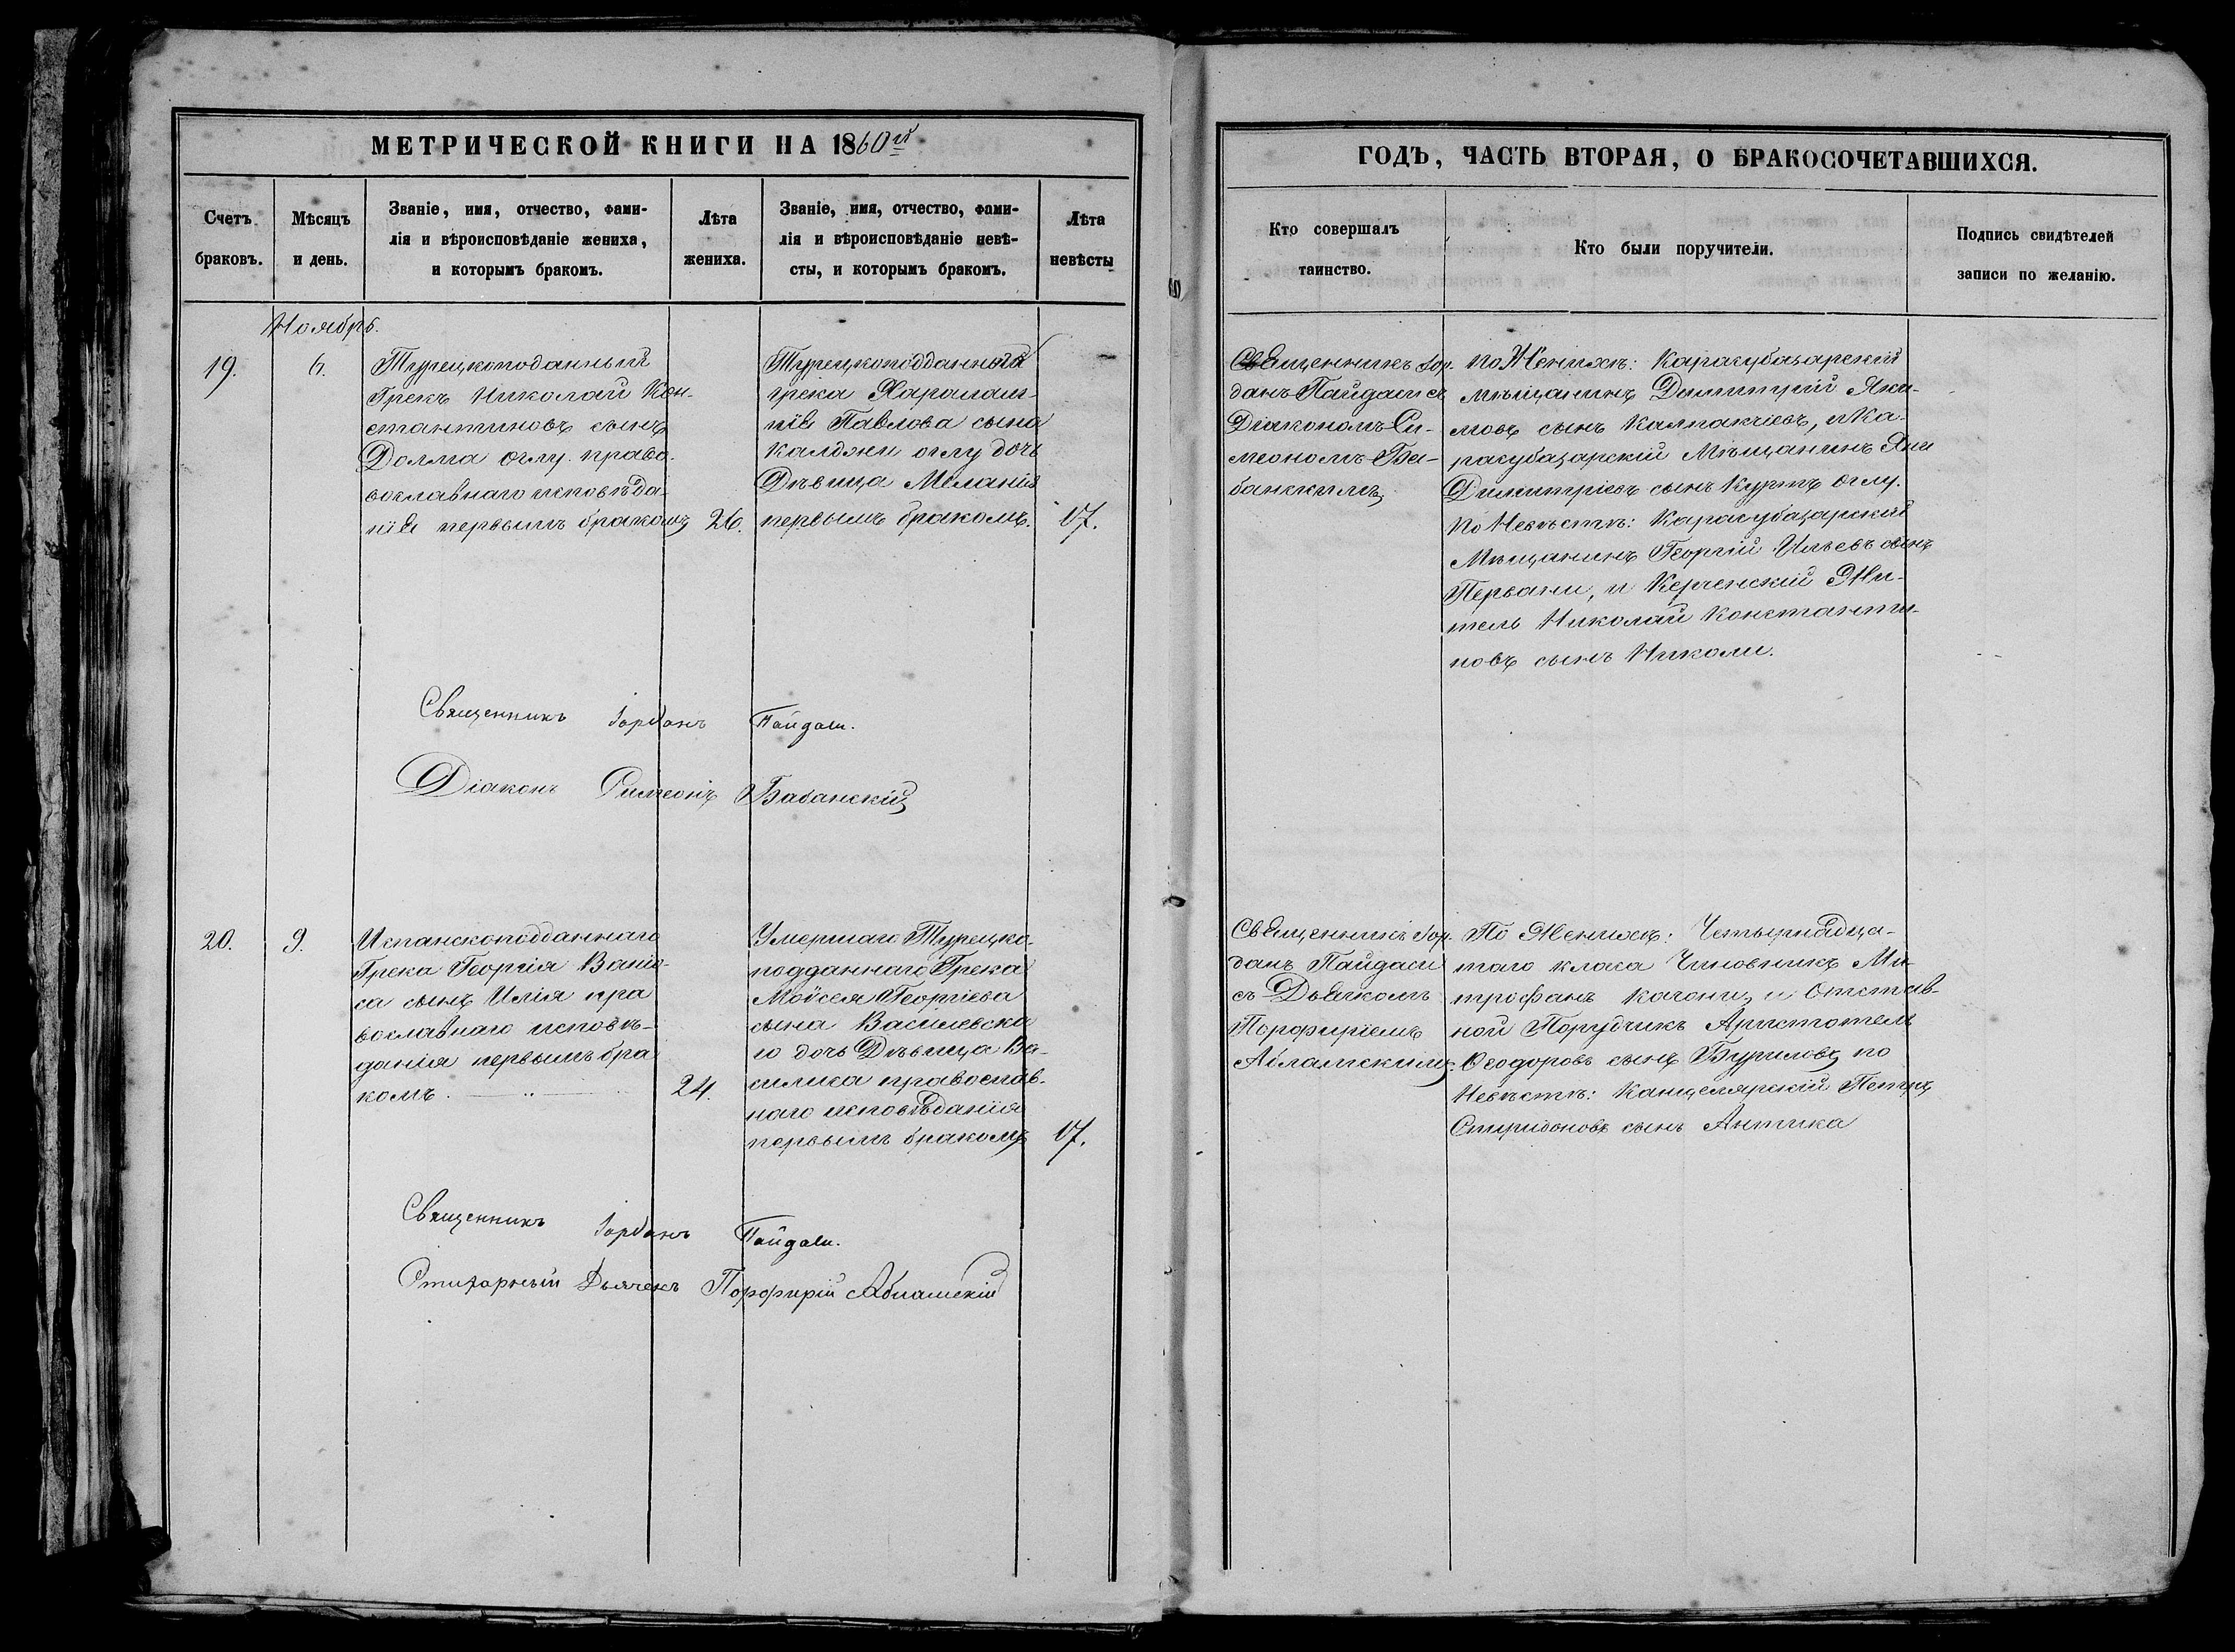 МЕТРИЧЕСКОЙ КНИГИ НА 1860й
Счетъ браковъ.
Мѣсяцъ и день.
Званіе, имя, отчество, фами-
лія и вѣроисповѣданіе жениха,
и которымъ бракомъ.
Лѣта жениха.
Званіе, имя, отчество, фами-
лія и вѣроисповѣданіе невѣ-
сты, и которымъ бракомъ.
Лѣта невѣсты
Ноябрь.
19.
6.
Турецкоподанный
Грекъ Николай Кон-
стантиновъ сынъ
Долма оглу. право-
вославнаго исповѣда-
нія первымъ бракомъ
26.
Турецкоподданнаго
грека Харалам-
пія Павлова сына
Калджи оглу дочь
Дѣвица Меланія
первымъ бракомъ.
17.
Священникъ Іорданъ Пайдаси.
Діаконъ Симеонъ Бабанскій
20.
9.
Испанскоподданнаго
Грека ГеоргіяВаніо-
са сынъ Илія пра
вославнаго исповѣ-
данія первымъ бра
комъ.
24.
Умершаго Турецко-
подданнаго Грека
Мойсея Георгіева
сына Василевска
го дочь Дѣвица Ва-
силика православ-
наго исповѣданія
первымъ бракомъ
17.
Священникъ Іорданъ Пайдаси.
Стихарный Дьячекъ Порфирій Абламскій
ГОДЪ, ЧАСТЬ ВТОРАЯ, О БРАКОСОЧЕТАВШИХСЯ.
Кто совершалъ
таинство.
Кто были поручители.
Подпись свидѣтелей
записи по желанію.
Священникъ Іор-
данъ Пайдаси съ
Діакономъ Си-
меономъ Ба-
банскимъ
по Женихѣ: Карасубазарскій
мѣщанинъ Димитрій Яки-
мовъ сынъ Калпакчіевъ, и Ка-
расубазарскій Мѣщанинъ Яни
Димитріевъ сынъ Куртъ оглу.
по Невѣстѣ: Карасубазарскій
Мѣщанинъ Георгій Ильевъ сынъ
Первани, и Керченскій Жи-
тель Николай Константи-
новъ сынъ Николи.
Священникъ Іор-
данъ Пайдаси
съ Дьячкомъ
Порфиріемъ
Абламскимъ.
По Женихѣ: Четырнадца-
таго класа Чиновникъ Ми-
трофанъ Качони, и Отстав-
ной Порудчикъ Аристотель
Ѳеодоровъ сынъ Буриловъ по
Невѣстѣ: Канцелярскій Петръ
Спиридоновъ сынъ Антика